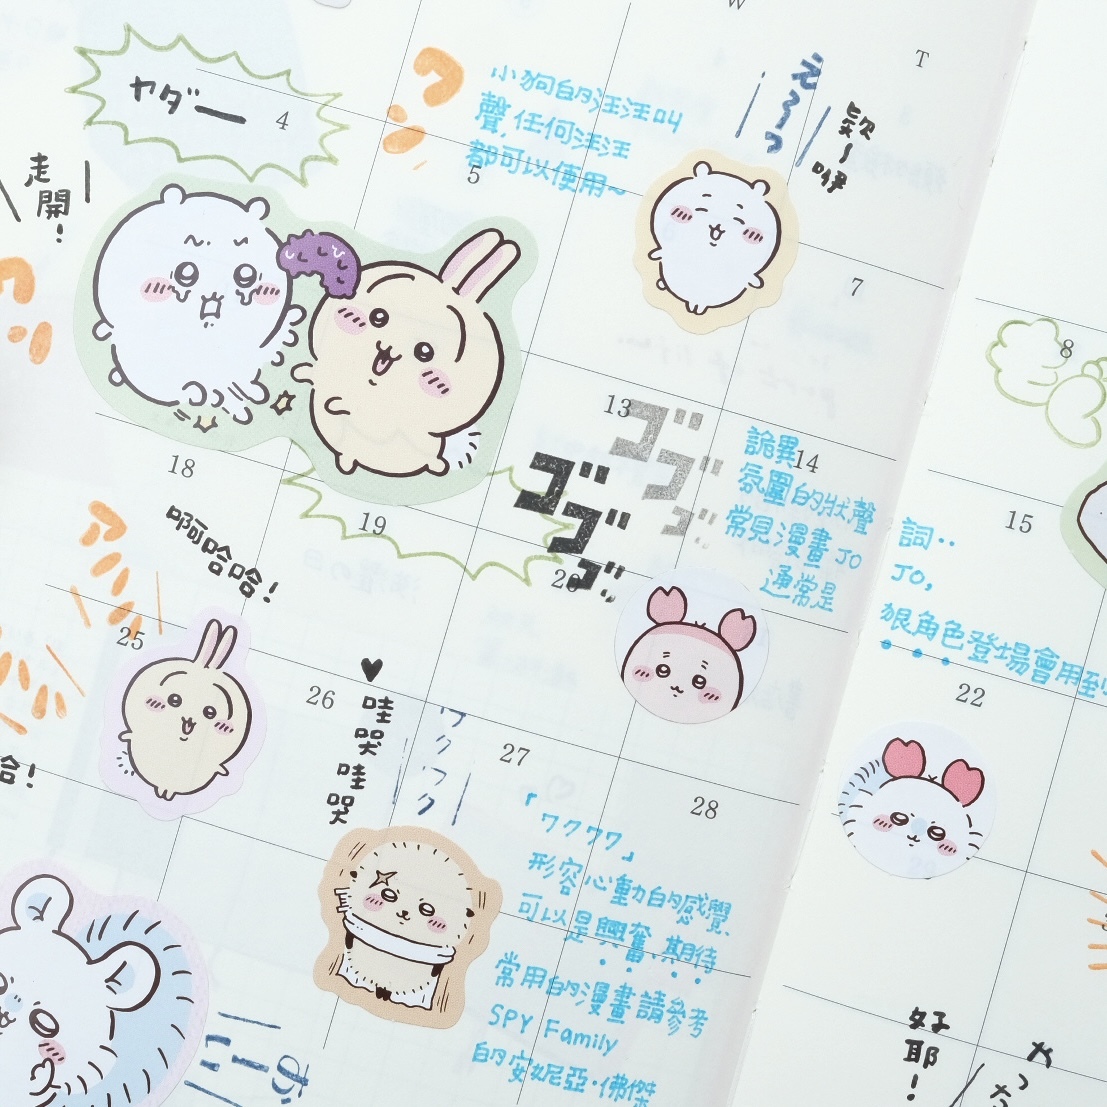 W
T
ヤダー
4
走
開!
ワン
小狗的汪汪叫
聲,任何汪汪
都可以使用~
5
え~っ
欸~咿
7
8
13
14
ゴゴゴ
ゴゴゴ
詭異
氛圍的狀聲
常見漫畫JO
通常是
15
詞..
JO,
狠角色登場會用到
18
19
20
啊哈哈!
22
25
26
哇哭哇哭
ワクワク
27
28
「ワクワク」
形容心動的感覺
可以是興奮.期待
常用的漫畫請參考
SPY Family
的安妮亞·佛傑
哈!
おーい
好耶!
やっ